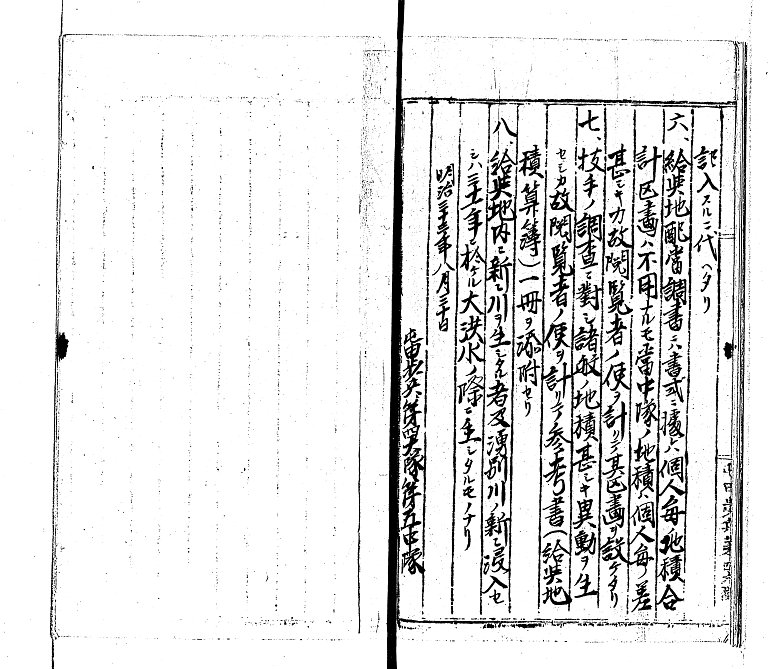 記入スルニ代ヘタリ
六、給与地配当調書ニハ書式ニ拠レハ個人毎地積合
計区画ハ不用ナルモ当中隊ノ地積ハ個人毎ノ差
甚シキカ故閲覧者ノ便ヲ計リテ其区画ヲ設ケタリ
七、技手ノ調査ニ対シ諸般ノ地積甚シキ異動ヲ生
セシカ故閲覧者ノ便ヲ計リテ参考書(給与地
積算簿)一冊ヲ添附セリ
八、給与地内ニ新ニ川ヲ生シタル者及湧別川ノ新ニ浸入セ
シハ三十一年ニ於ケル大洪水ノ際ニ生シタルモノナリ
明治三十三年八月三十日
屯田歩兵第四大隊第五中隊